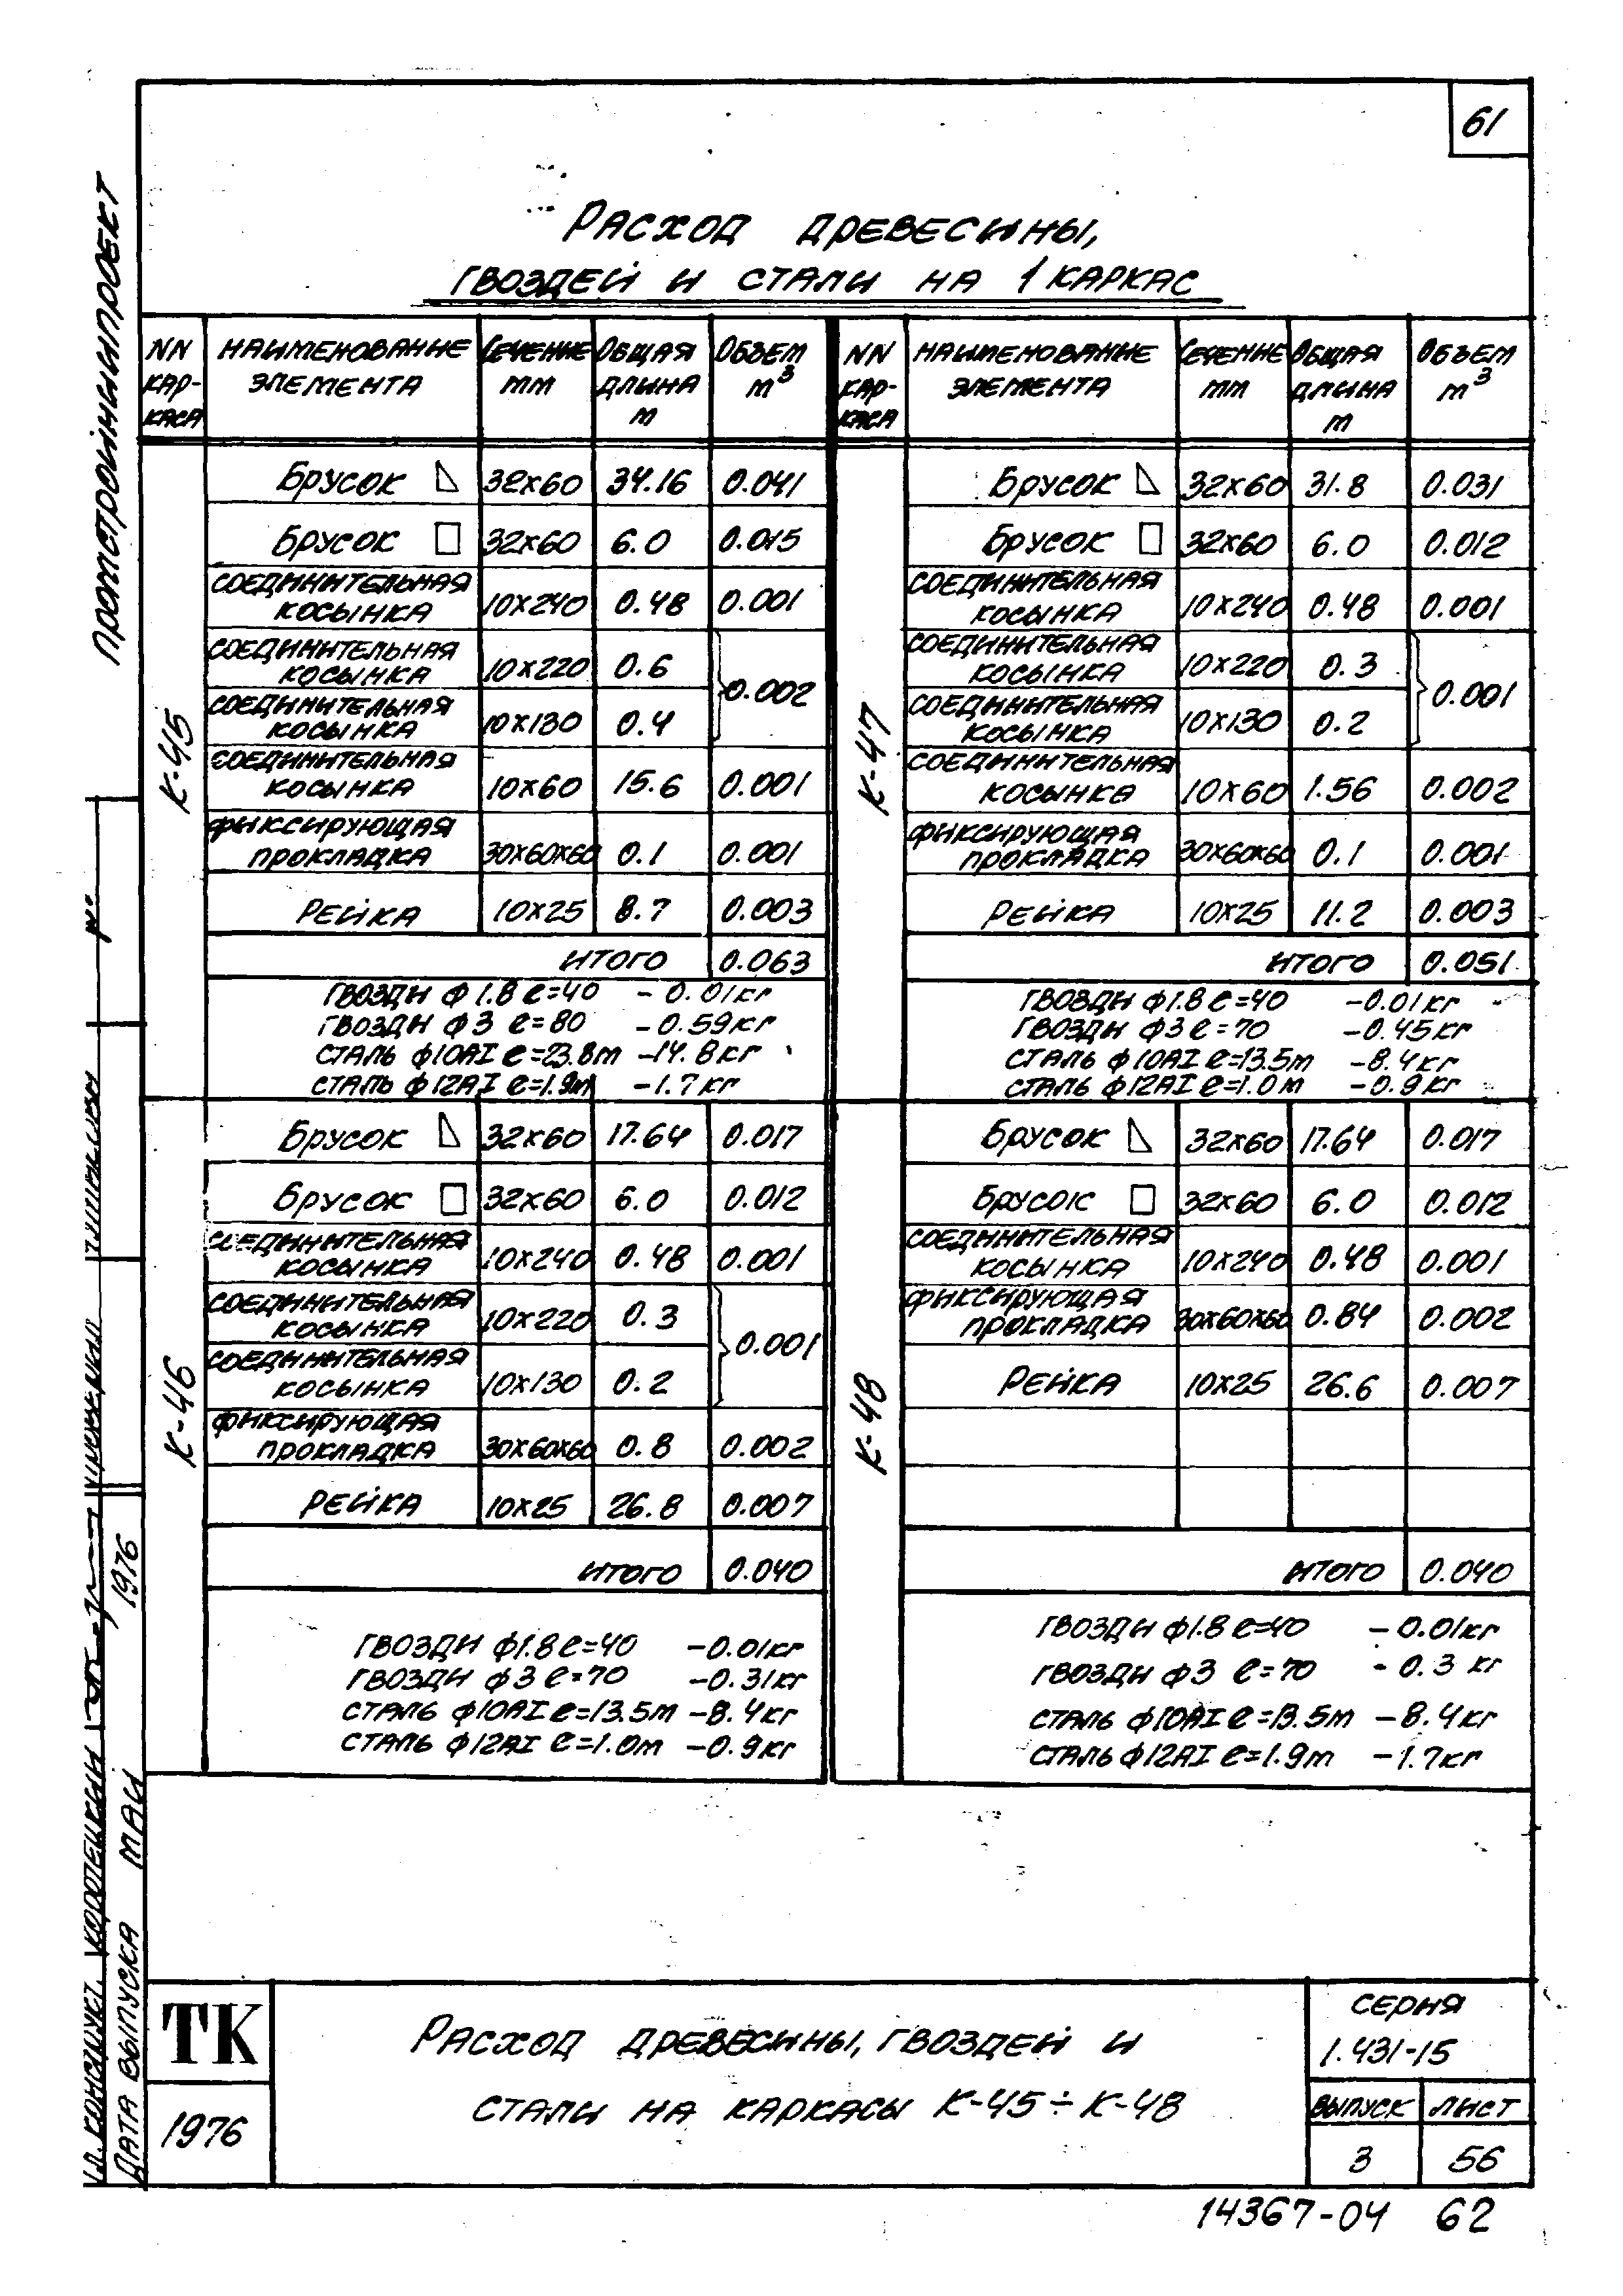 61
Расход древесины,
гвоздей и стали на 1 каркас
NN каркаса | Наименование элемента | Сечение mm | Общая длина m | Объем m³
К-45
Брусок 32х60 34.16 0.041
Брусок 32х60 6.0 0.015
Соединительная косынка 10х240 0.48 0.001
Соединительная косынка 10х220 0.6
0.002
Соединительная косынка 10х130 0.4
Соединительная косынка 10х60 15.6 0.001
Фиксирующая прокладка 30х60х60 0.1 0.001
Рейка 10х25 8.7 0.003
Итого 0.063
Гвозди ф1.8 ℓ=40 - 0.01кг
Гвозди ф3 ℓ=80 - 0.59кг
Сталь ф10АI ℓ=23.8m - 14.8кг
Сталь ф12АI ℓ=1.9m - 1.7кг
К-46
Брусок 32х60 17.64 0.017
Брусок 32х60 6.0 0.012
Соединительная косынка 10х240 0.48 0.001
Соединительная косынка 10х220 0.3
0.001
Соединительная косынка 10х130 0.2
Фиксирующая прокладка 30х60х60 0.8 0.002
Рейка 10х25 26.8 0.007
Итого 0.040
Гвозди ф1.8 ℓ=40 - 0.01кг
Гвозди ф3 ℓ=70 - 0.31кг
Сталь ф10АI ℓ=13.5m - 8.4кг
Сталь ф12АI ℓ=1.0m - 0.9кг
NN каркаса | Наименование элемента | Сечение mm | Общая длина m | Объем m³
К-47
Брусок 32х60 31.8 0.031
Брусок 32х60 6.0 0.012
Соединительная косынка 10х240 0.48 0.001
Соединительная косынка 10х220 0.3
0.001
Соединительная косынка 10х130 0.2
Соединительная косынка 10х60 1.56 0.002
Фиксирующая прокладка 30х60х60 0.1 0.001
Рейка 10х25 11.2 0.003
Итого 0.051
Гвозди ф1.8 ℓ=40 - 0.01кг
Гвозди ф3 ℓ=70 - 0.45кг
Сталь ф10АI ℓ=13.5m - 8.4кг
Сталь ф12АI ℓ=1.0m - 0.9кг
К-48
Брусок 32х60 17.64 0.017
Брусок 32х60 6.0 0.012
Соединительная косынка 10х240 0.48 0.001
Фиксирующая прокладка 30х60х60 0.84 0.002
Рейка 10х25 26.6 0.007
Итого 0.040
Гвозди ф1.8 ℓ=40 - 0.01кг
Гвозди ф3 ℓ=70 - 0.3 кг
Сталь ф10АI ℓ=13.5m - 8.4кг
Сталь ф12АI ℓ=1.9m - 1.7кг
Промстройниипроект
Дата выпуска май 1976
ТК
1976
Расход древесины, гвоздей и
стали на каркасы К-45÷К-48
Серия
1.431-15
Выпуск Лист
3 56
14367-04 62